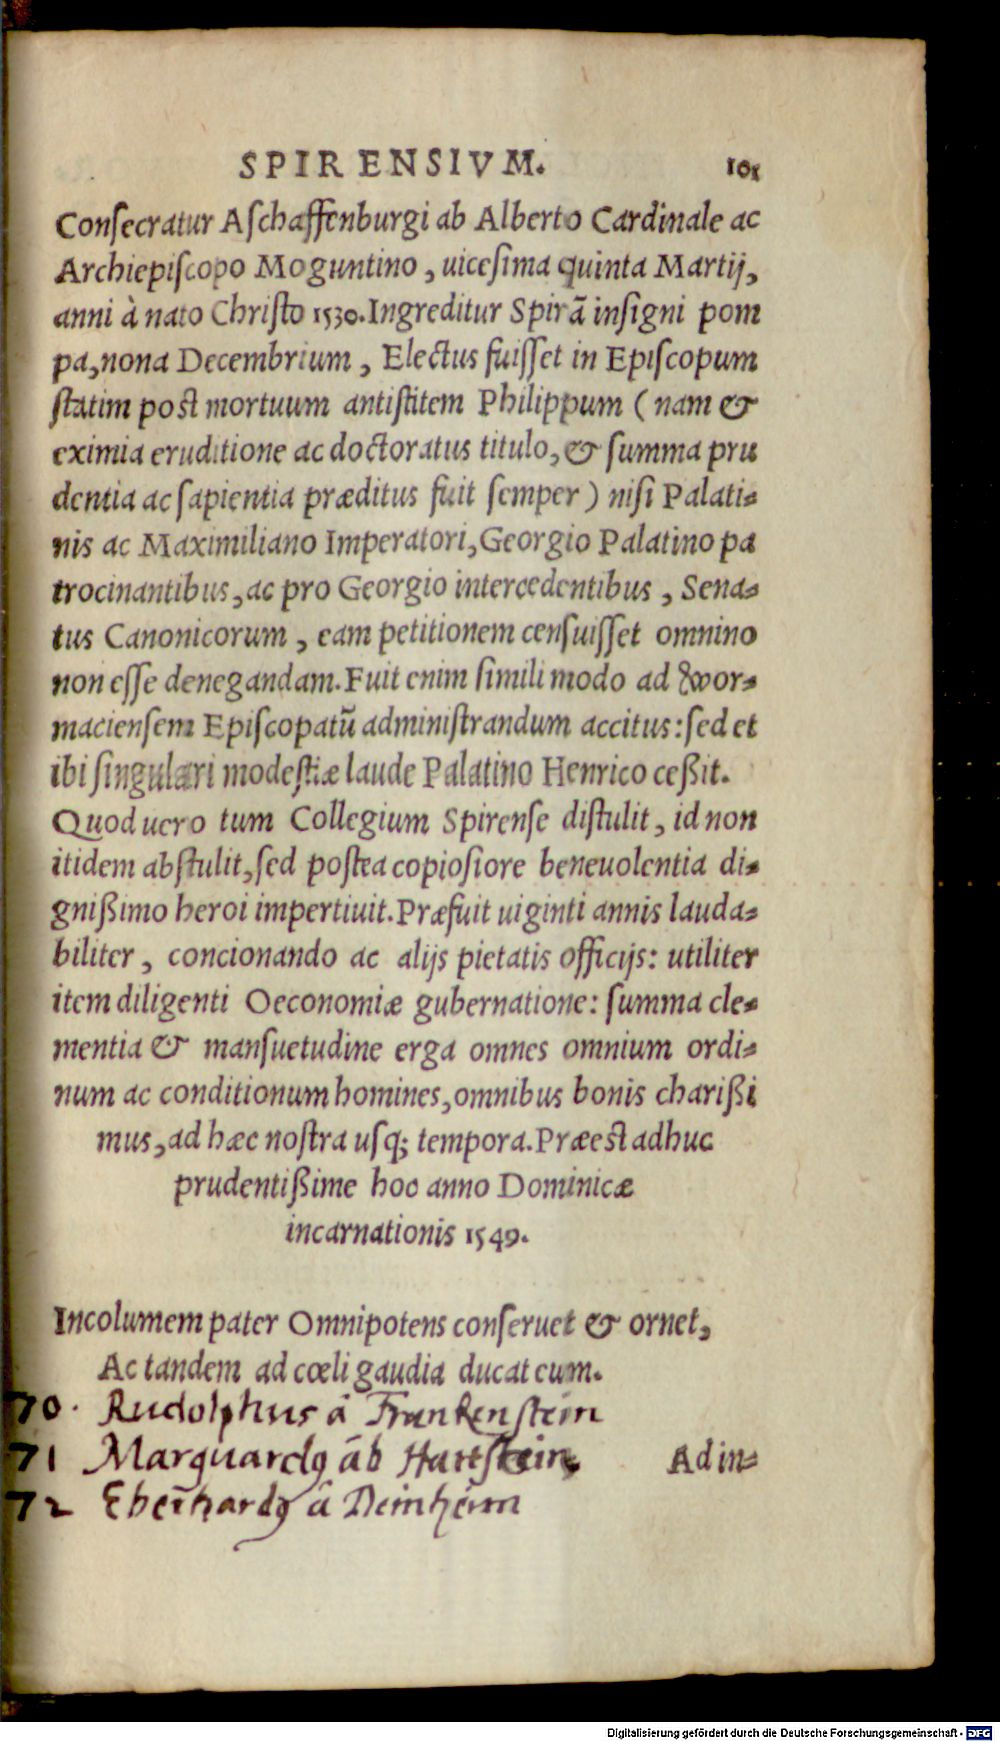 SPIRENSIVM. 101
Conſecratur Aſchaffenburgi ab Alberto Cardinale ac
Archiepiſcopo Moguntino, uiceſima quinta Martij,
anni à nato Chriſto 1530. Ingreditur Spirã inſigni pom
pa, nona Decembrium, Electus fuiſſet in Epiſcopum
ſtatim poſt mortuum antiſtitem Philippum (nam &
eximia eruditione ac doctoratus titulo, & ſumma pru
dentia ac ſapientia præditus fuit ſemper) niſi Palati=
nis ac Maximiliano Imperatori, Georgio Palatino pa
trocinantibus, ac pro Georgio intercedentibus, Sena=
tus Canonicorum, eam petitionem cenſuiſſet omnino
non eſſe denegandam. Fuit enim ſimili modo ad Wor=
macienſem Epiſcopatũ adminiſtrandum accitus: ſed et
ibi ſingulari modeſtiæ laude Palatino Henrico ceßit.
Quod uero tum Collegium Spirenſe diſtulit, id non
itidem abſtulit, ſed poſtea copioſiore beneuolentia di=
gnißimo heroi impertiuit. Præfuit uiginti annis lauda=
biliter, concionando ac alijs pietatis officijs: utiliter
item diligenti Oeconomiæ gubernatione: ſumma cle=
mentia & manſuetudine erga omnes omnium ordi=
num ac conditionum homines, omnibus bonis charißi
mus, ad hæc noſtra uſq; tempora. Præeſt adhuc
prudentißime hoc anno Dominicæ
incarnationis 1549.
Incolumem pater Omnipotens conſeruet & ornet,
Ac tandem ad cœli gaudia ducat eum.
70. Rudolphus â Frankenſtein
71 Marquardꝰ âb Hattſtein
Ad in=
72 Eberhardꝰ â Deinheim
Digitalisierung gefördert durch die Deutsche Forschungsgemeinschaft - DFG